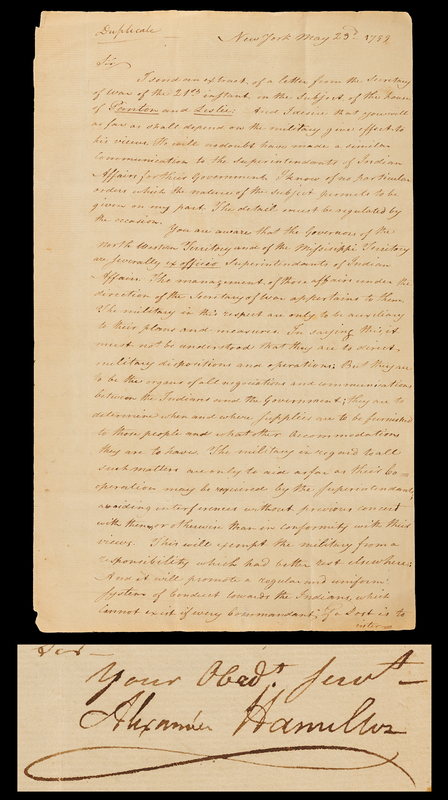 Duplicate
New York May 23d. 1799
Sir
I send an extract, of a letter from the Secretary
of War of the 21st instant on the subject of the house
of Panton and Leslie: And I desire that you will
as far as shall depend on the military give effect to
his views. He will no doubt have made a similar
Communication to the Superintendants of Indian
Affairs for this Government. I know of no particular
orders which the nature of the subject permits to be
given on my part. The detail must be regulated by
the occasion.
You are aware that the Governors of the
North Western Territory and of the Missisippi Territory
are severally ex officio Superintendants of Indian
Affairs. The management of those affairs under the
direction of the Secretary of War appertains to them.
The military in this respect are only to be auxiliary
to their plans and measures. In saying this it
must not be understood that they are to direct
military dispositions and operations; But they are
to be the organs of all negociations and communications
between the Indians and the Government; they are to
determine when and where supplies are to be furnished
to those people and what other accommodations
they are to have. The military in regard to all
such matters are only to aid as far as their Co=
operation may be required by the Superintendants,
avoiding interferences without previous concert
with them, or otherwise than in conformity with their
views. This will exempt the military from a
responsibility which had better rest elsewhere:
And it will promote a regular and uniform
System of Conduct towards the Indians, which
cannot exist if every Commandant of a Post is to
Your Obedt. Servt
Alexander Hamilton